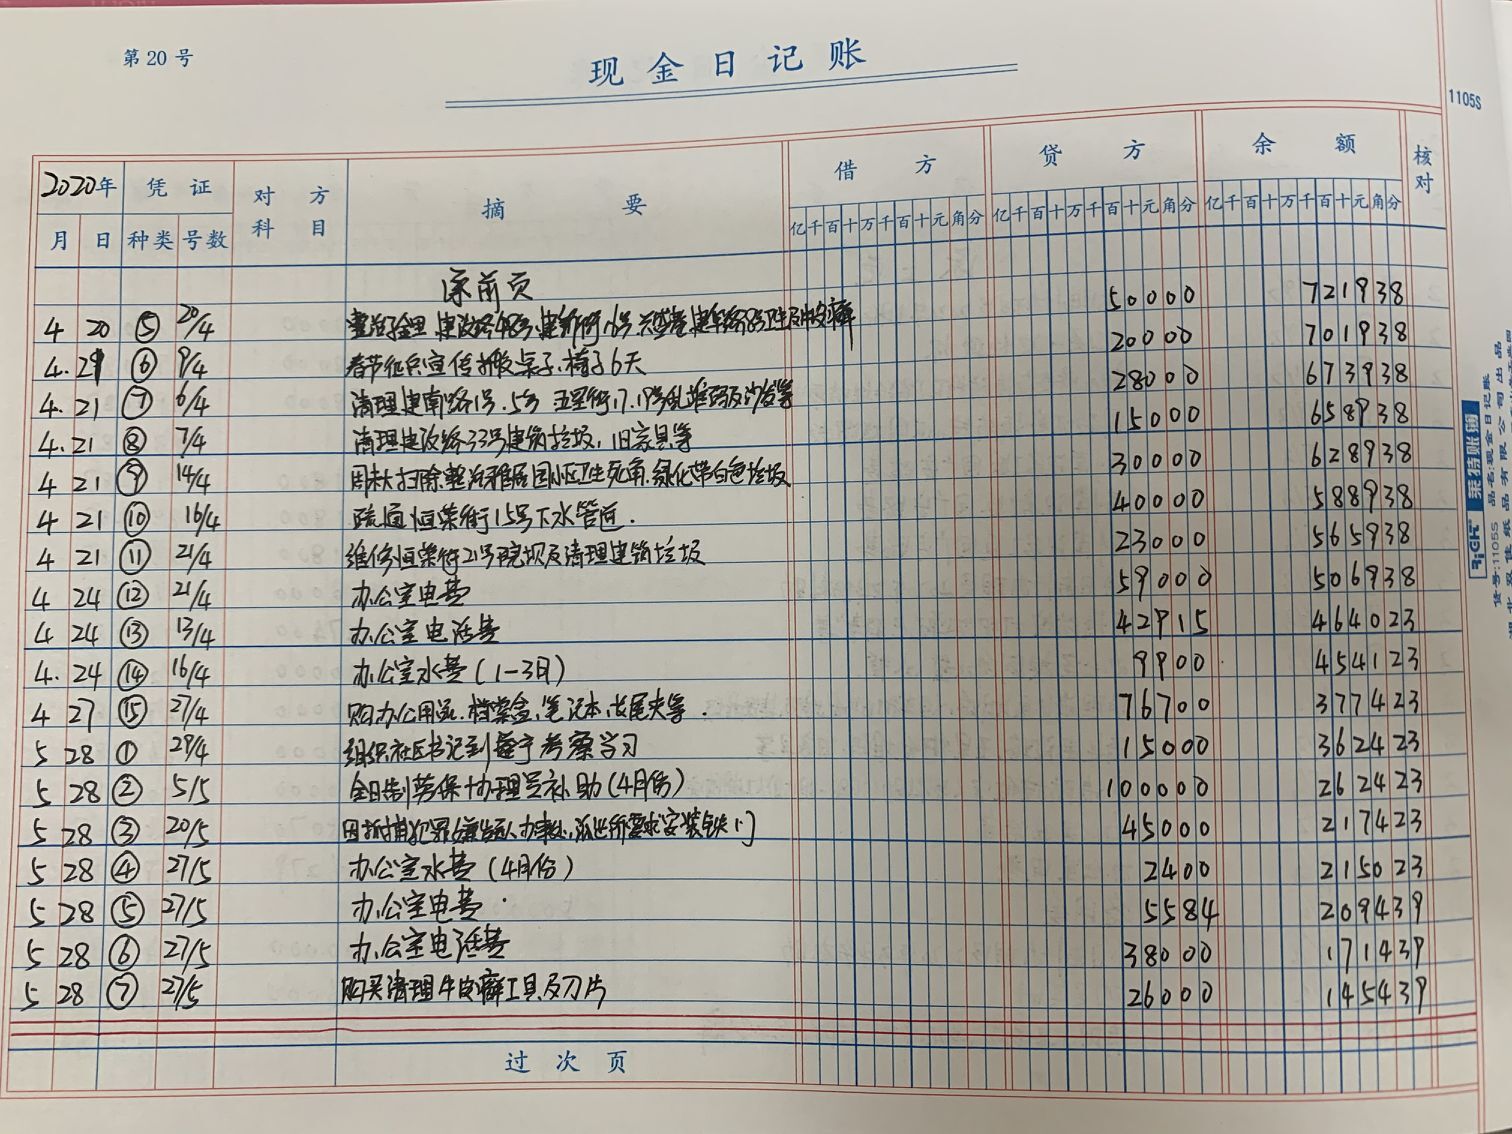 第20号
现金日记账
1105S
2020年 凭证 对方科目 摘要 借方 贷方 余额 核对
月 日 种类 号数 亿千百十万千百十元角分 亿千百十万千百十元角分 亿千百十万千百十元角分
承前页 50000 721938
4 20 ⑤ 20/4 建设路48号 20000 701938
4.21 ⑥ 9/4 春节征兵宣传搬桌子、椅子6天 28000 673938
4.21 ⑦ 6/4 清理建南路1号.5号 五星街17.19号乱堆码及沙发等 15000 658938
4.21 ⑧ 7/4 清理建设路33号建筑垃圾,旧家具等 30000 628938
4 21 ⑨ 14/4 周末大扫除整治雅居园小区卫生死角.绿化带白色垃圾 40000 588938
4 21 ⑩ 16/4 疏通恒荣街15号下水管道. 23000 565938
4 21 ⑪ 21/4 维修恒荣街21号院坝及清理建筑垃圾 59000 506938
4 24 ⑫ 21/4 办公室电费 42915 464023
4 24 ⑬ 13/4 办公室电话费 9900 454123
4.24 ⑭ 16/4 办公室水费(1-3月) 76700 377423
4 27 ⑮ 27/4 购办公用品.档案盒,笔记本,长尾夹等. 15000 362423
5 28 ① 29/4 组织社区书记到 考察学习 100000 262423
5 28 ② 5/5 全日制劳保协理员补助(4月份) 45000 217423
5 28 ③ 20/5 因抓捕犯罪嫌疑人办事处,派出所要求安装铁门 2400 215023
5 28 ④ 27/5 办公室水费(4月份) 5584 209439
5 28 ⑤ 27/5 办公室电费 38000 171439
5 28 ⑥ 27/5 办公室电话费 26000 145439
5 28 ⑦ 27/5 购买清理牛皮癣工具及刀片
过次页
RiGHT 莱特账簿
货号:1105S 品名:现金日记账